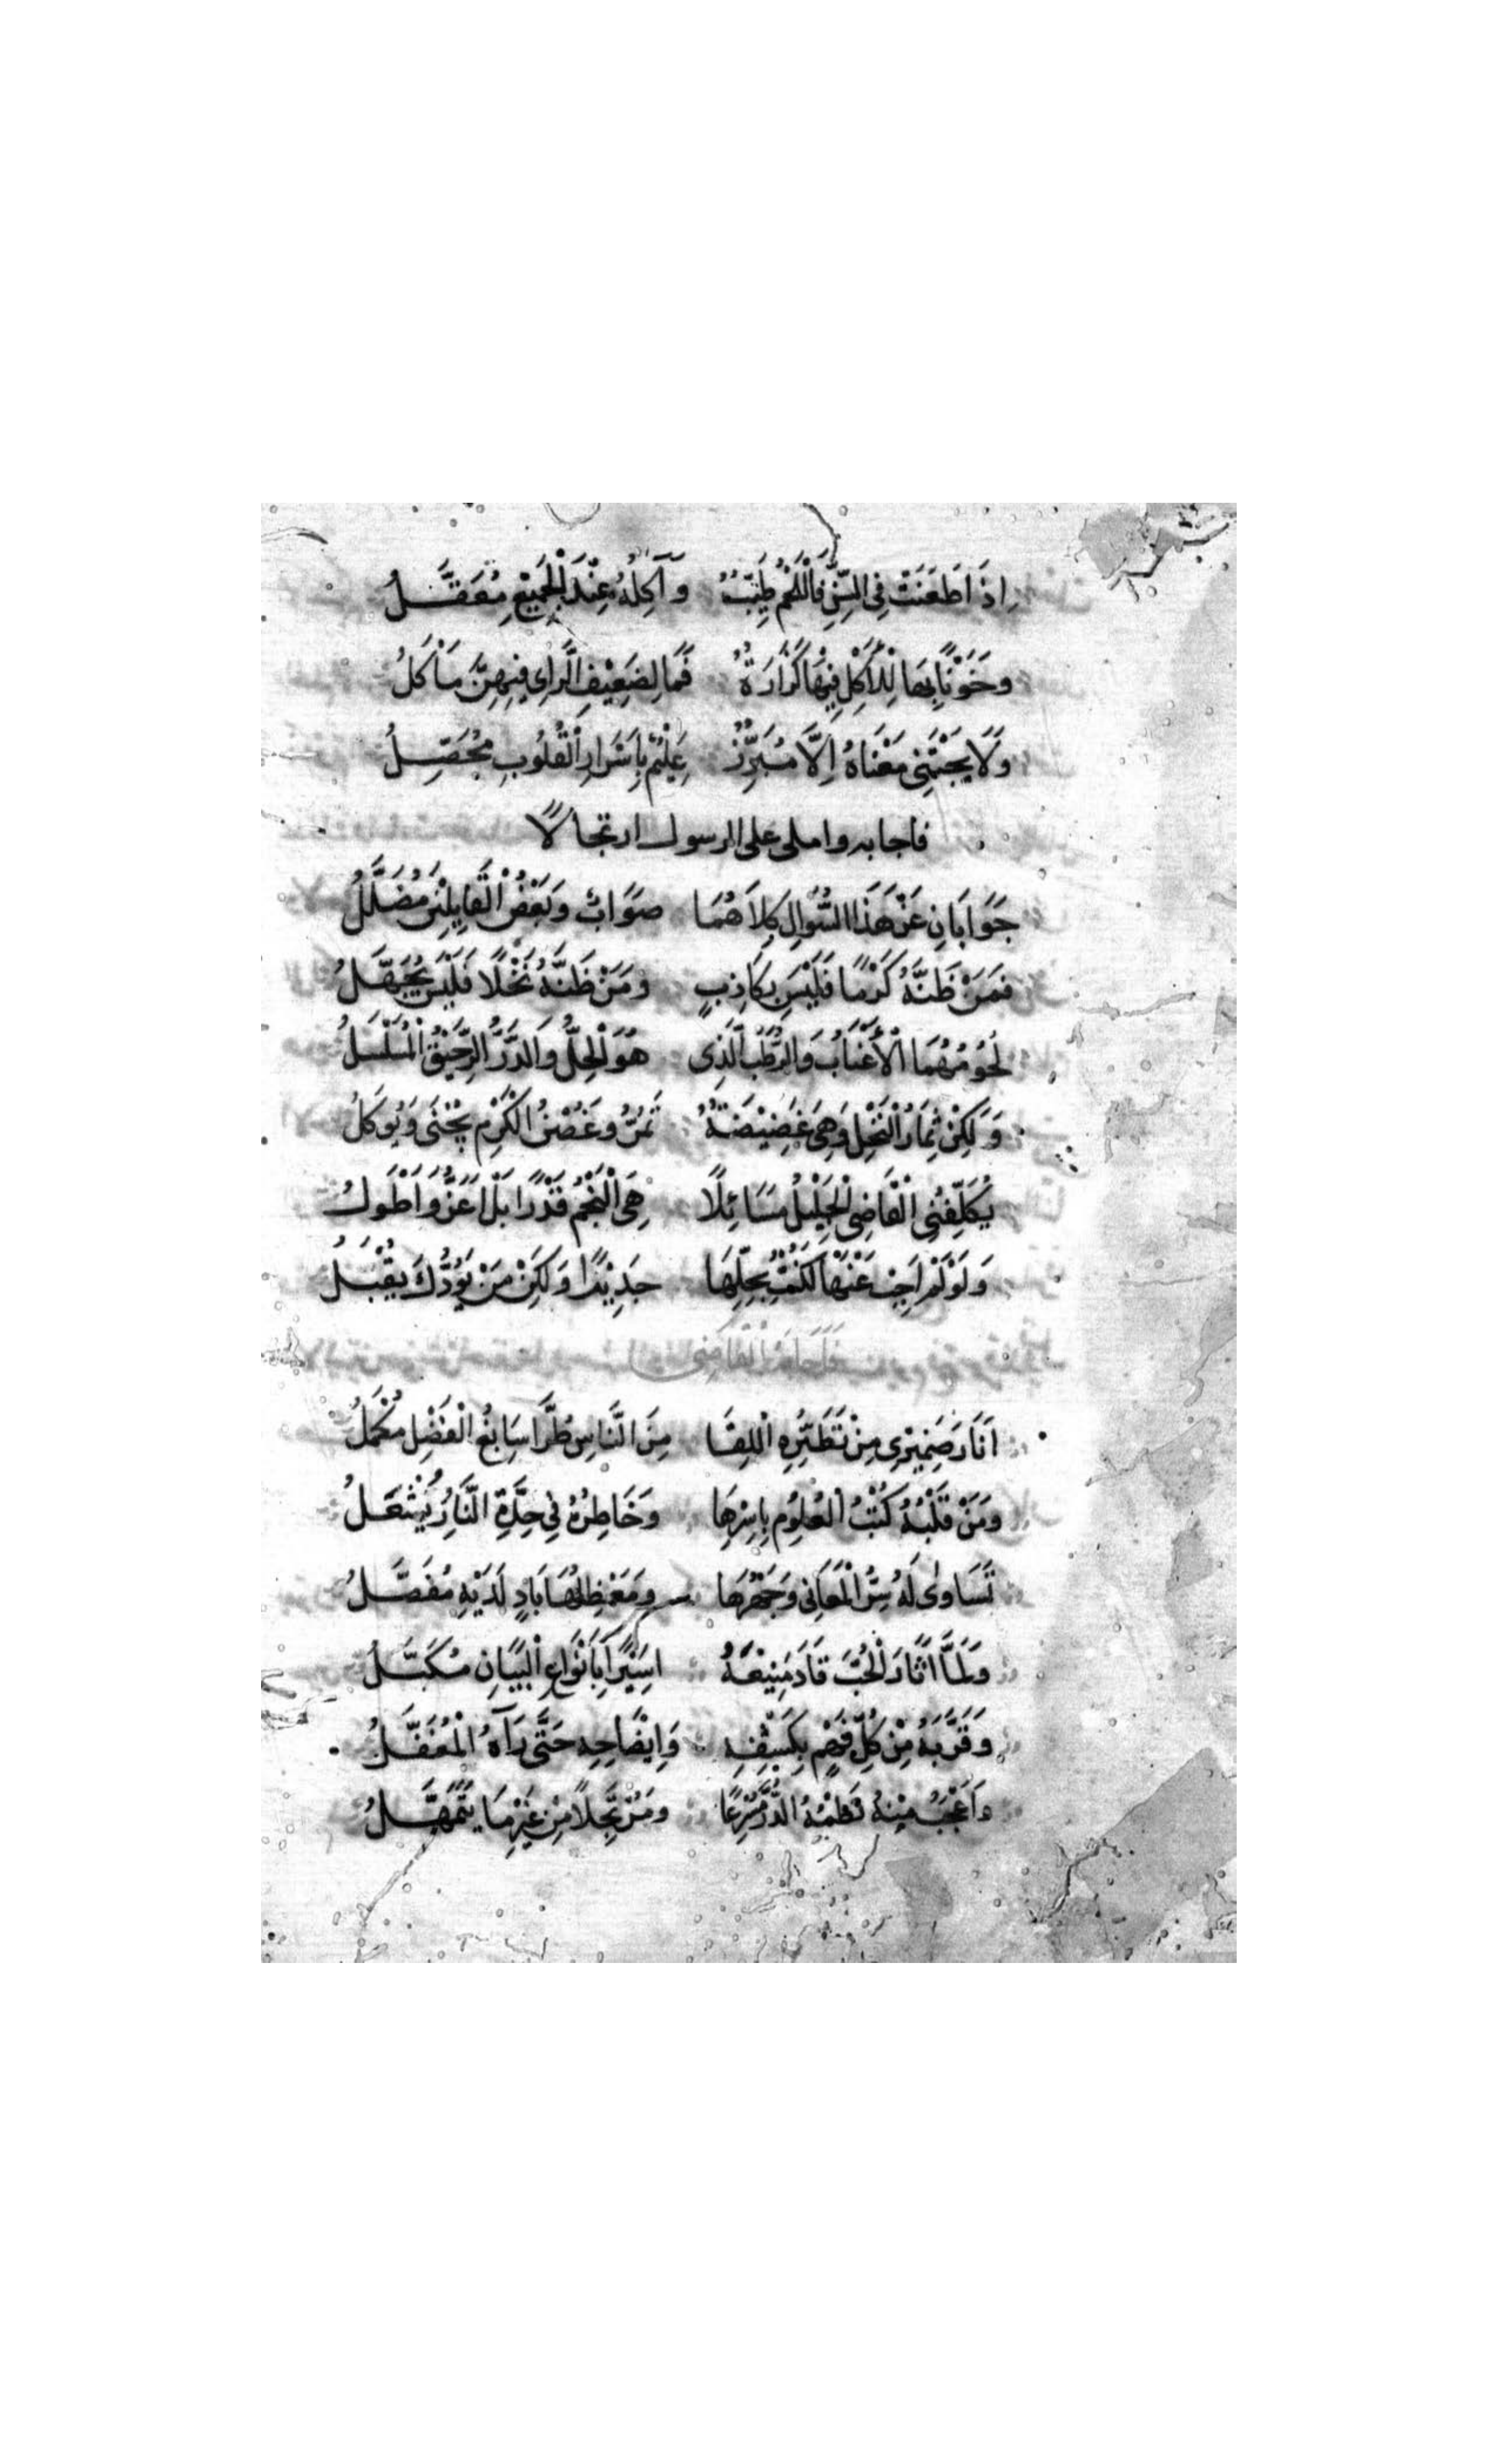 اِذَا طَعَنَتْ فِى السِّنِّ فَالْلَحْمُ طَيِّبٌ وَآكِلُهُ عِنْدَ الْجَمِيْعِ مُعَقَّلُ
وخَرْفَانُهَا لِلْاَكْلِ فِيْهَا كَزَازَةٌ فَمَا لِضَعِيْفِ الرَّاىِ فِيْهِنَّ مَاْكَلُ
وَلَا يَجْتَنِى مَعْنَاهُ اِلَّا مُبَرِّزٌ عَلِيْمٌ بِاَسْرَارِ الْقُلُوبِ مُحَصِّلُ
فاجابه واملى على الرسول ارتجالًا
جَوَابَانِ عَنْ هَذَا السُّوَالِ كِلَاهُمَا صَوَابٌ وَبَعْضُ الْقَايِلِيْنَ مُضَلَّلُ
فمَنْ ظَنَّهُ كَرْمًا فَلَيْسَ بِكَاذِبٍ ومَنْ ظَنَّهُ نَخْلًا فَلَيْسَ يُجَهَّلُ
لُحُومُهُمَا الْاَعْنَابُ وَالرُّطَبُ الَّذِى هُوَ الْحِلُّ والدَّرُّ الرَّحِيْقُ الْمُسَلْسَلُ
وَلَكِنْ ثِمَارُ النَّخْلِ وَهِىَ غَضِيْضَةٌ تَمُرُّ وغَصْنُ الْكَرْمِ يُجْنَى وَيُوكَلُ
يُكَلِّفُنِى الْقَاضِى الْجَلِيْلُ مَسَائِلًا هِىَ النَّجْمُ قَدْرًا بَلْ اَعَزُّ وَاَطْوَلُ
وَلَوْ لَمْ اُجِبْ عَنْهَا لَكُنْتُ بِجَهْلِهَا جَدِيْرًا وَلَكِنْ مَنْ يَوَدُّكَ يقْبَلُ
فَاَجَابَهُ الْقَاضِى
اَنَارَ ضَمِيْرِى مِنْ نَظِيْرِهِ مِنَ النَّاسِ طُرًّا سَابِغُ الْفَضْلِ مُكْمَلُ
ومَنْ قَلْبُهُ كُتْبُ الْعُلُوْمِ بِاَسْرِهَا وَخَاطِرُهُ فِى حِدَّةِ النَّارِ يُشْعَلُ
تَسَاوَى لَهُ سِرُّ الْمَعَانِى وَجَهْرُهَا ومُعْضِلُهَا بَادٍ لَدَيْهِ مُفَصَّلُ
ولَمَّا اَثَارَ الْحُبَّ قَادَ مَنِيْعَهُ اسِيْرًا بِاَنْوَاعِ الْبَيَانِ مُكَبَّلُ
وَقَرَّبَهُ مِنْ كُلِّ فَهْمٍ بِكَشْفِهِ وَاِيْضَاحِهِ حَتَّى رَآهُ الْمُغَفَّلُ
وَاَعْجَبُ مِنْهُ نَظْمُهُ الدُّرَّ مُسْرِعًا ومُرْتَجِلًا مِنْ غَيْرِ مَا يَتَمَهَّلُ